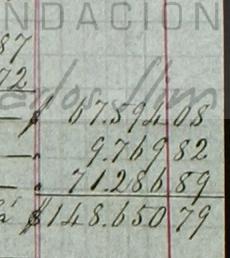 NDACION
87
72
arlos Slim
— $ 67.594 08
— " 9.769 82
— " 71.286 89
á $148.650 79